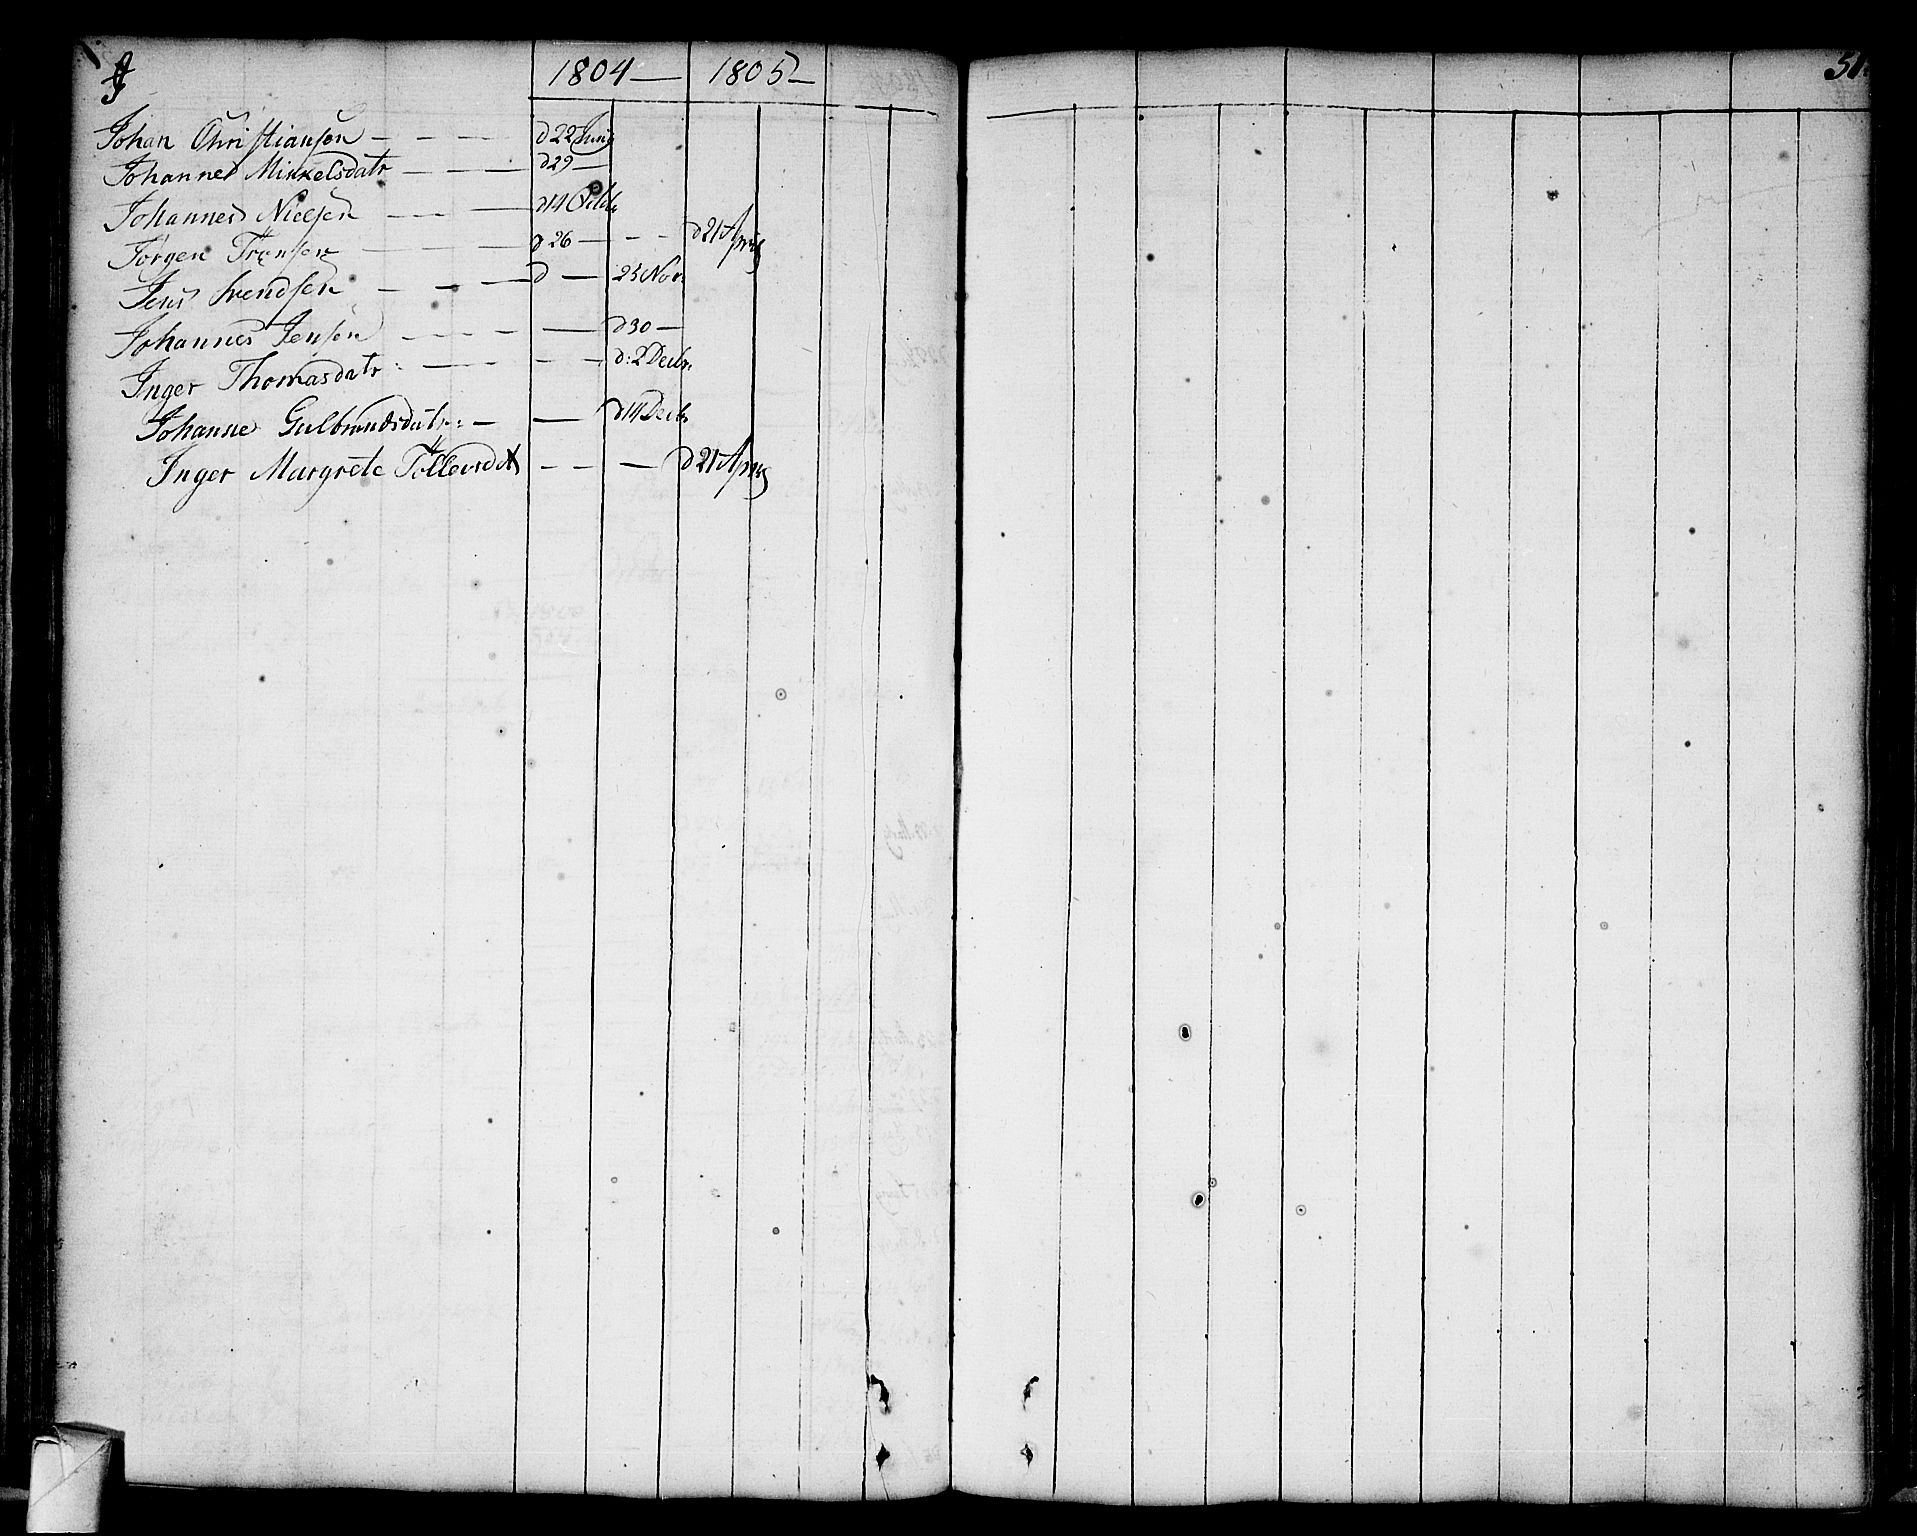 J 1804 — 1805 — 51.
Johan Christiansen — — — d 22 Junij
Johanne Mikkelsdatr — — — d 29 —
Johannes Nielsen — — — d 14 Octbr
Jörgen Transen — — — d 26 — — — d 21 April
Jens Svendsen — — — d — 25 Nov.
Johannes Jensen — — — — — d 30 —
Inger Thomasdatr: — — — — d: 2 Decbr.
Johanne Gulbrandsdatr: — — d 14 Decbr
Inger Margrete Tollevsd — — — d 21 April